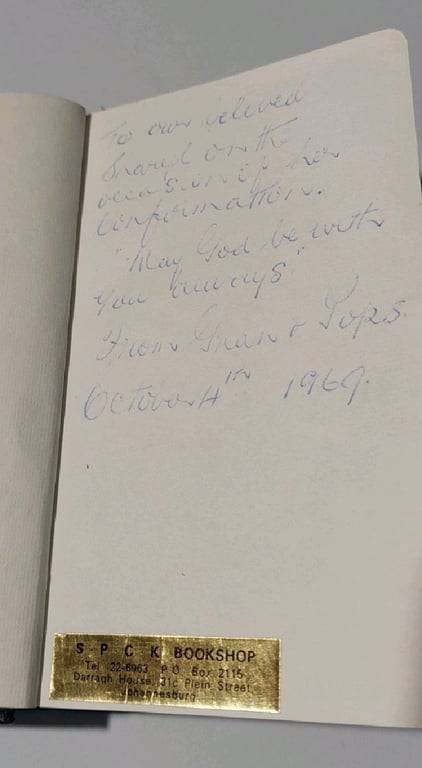 To our beloved
on the
occasion of her
confirmation.
"May God be with
you always"
From Gran & Pops.
October 4th 1969.
S P C K BOOKSHOP
Tel 22-6963 P O Box 2115
Darragh House, 31c Plein Street
Johannesburg